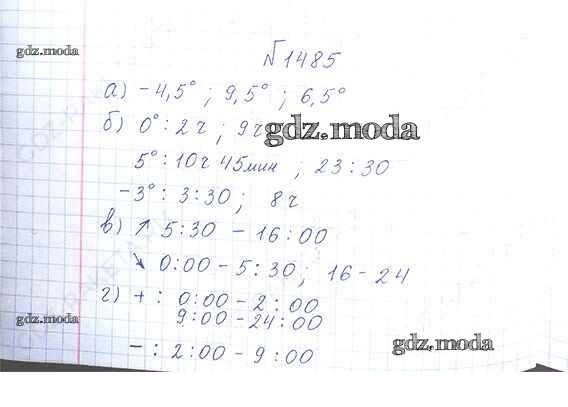 №1485
gdz.moda
а) -4,5° ; 9,5° ; 6,5°
б) 0° : 2ч ; 9ч
gdz.moda
5° : 10ч 45мин ; 23:30
-3° : 3:30 ; 8ч
в) ↗ 5:30 - 16:00
↘ 0:00 - 5:30 ; 16 - 24
г) + : 0:00 - 2:00
9:00 - 24:00
gdz.moda
- : 2:00 - 9:00
gdz.moda